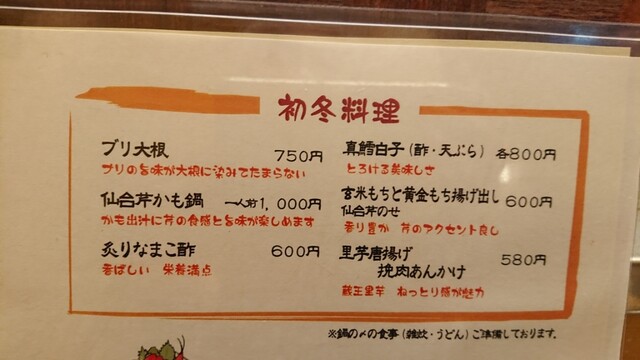 初冬料理
ブリ大根 750円
ブリの旨味が大根に染みてたまらない
仙台芹かも鍋 一人前1,000円
かも出汁に芹の食感と旨味が楽しめます
炙りなまこ酢 600円
香ばしい 栄養満点
真鱈白子(酢・天ぷら) 各800円
とろける美味しさ
玄米もちと黄金もち揚げ出し 600円
仙台芹のせ
香り豊か 芹のアクセント良し
里芋唐揚げ 580円
挽肉あんかけ
蔵王里芋 ねっとり感が魅力
※鍋の〆の食事(雑炊・うどん)ご準備しております。